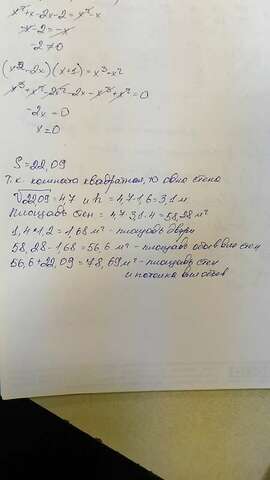 x² + x - 2x - 2 = x² - x
-x - 2 = -x
-2 ≠ 0
(x² - 2x)(x + 1) = x³ + x²
x³ + x² - 2x² - 2x - x³ + x² = 0
-2x = 0
x = 0
S = 22,09
Т.к. комната квадратная, то одна стена
√22,09 = 4,7 и h = 4,7 - 1,6 = 3,1 м
Площадь стен = 4,7 · 3,1 · 4 = 58,28 м²
1,4 * 1,2 = 1,68 м² - площадь двери
58,28 - 1,68 = 56,6 м² - площадь обоев стен
56,6 + 22,09 = 78,69 м² - площадь стен
и потолка